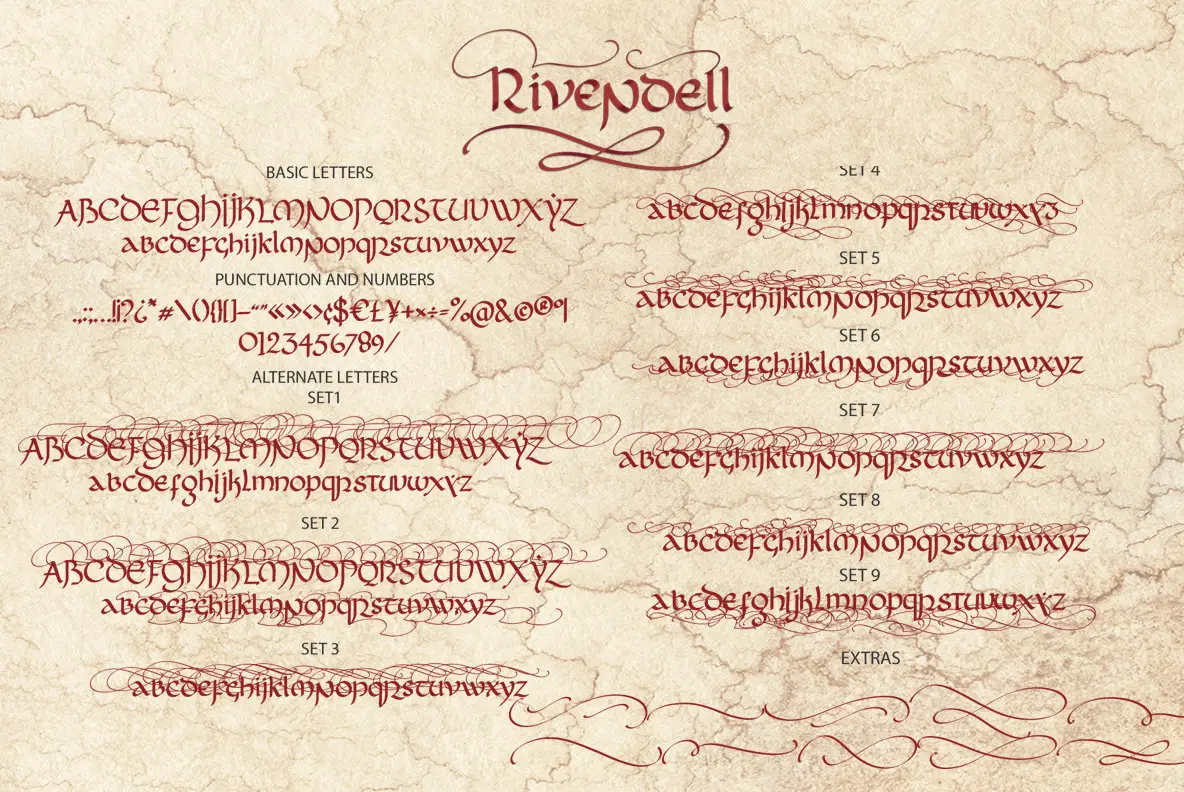 Rivendell
BASIC LETTERS
ABCDEFGHIJKLMNOPQRSTUVWXYZ
abcdefghijklmnopqrstuvwxyz
PUNCTUATION AND NUMBERS
.,:;...!¡?¿"*#\(){}[]—-“”«»‹›¢$€£¥+×÷=%@&©®º|
0123456789/
ALTERNATE LETTERS
SET1
ABCDEFGHIJKLMNOPQRSTUVWXYZ
abcdefghijklmnopqrstuvwxyz
SET 2
ABCDEFGHIJKLMNOPQRSTUVWXYZ
abcdefghijklmnopqrstuvwxyz
SET 3
abcdefghijklmnopqrstuvwxyz
SET 4
abcdefghijklmnopqrstuvwxyz
SET 5
abcdefghijklmnopqrstuvwxyz
SET 6
abcdefghijklmnopqrstuvwxyz
SET 7
abcdefghijklmnopqrstuvwxyz
SET 8
abcdefghijklmnopqrstuvwxyz
SET 9
abcdefghijklmnopqrstuvwxyz
EXTRAS